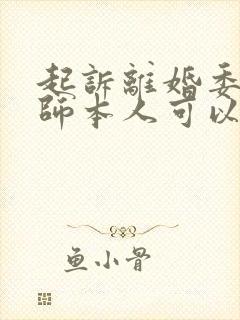 起訴離婚委
師本人可以
鱼小骨